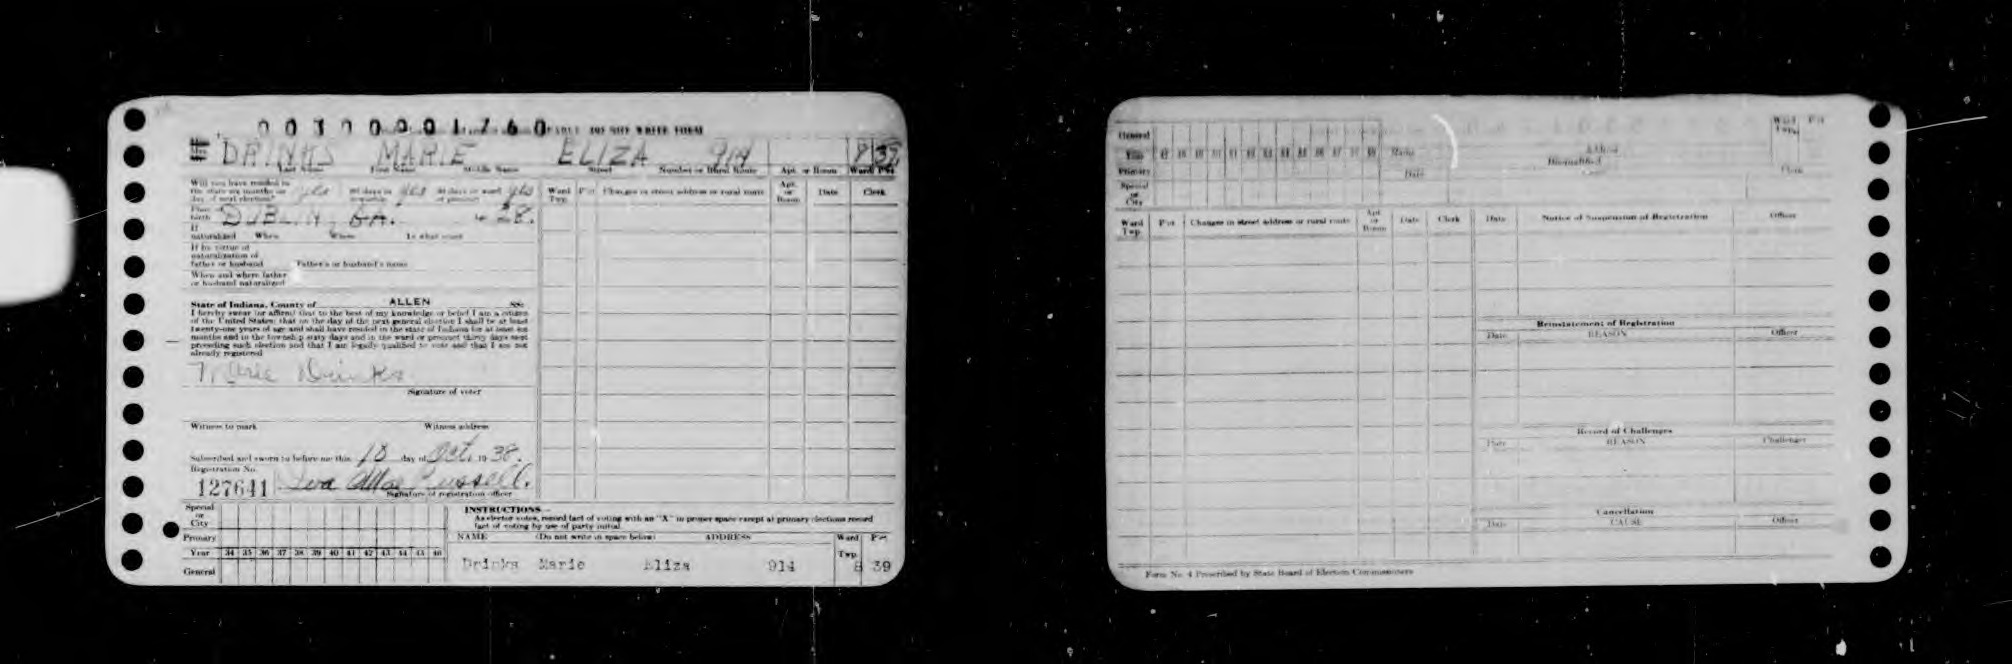 00100001760
DRINKS MARIE ELIZA 914 8 39
Last Name First Name Middle Name Street Number or Rural Route Apt. or Room Ward Pct
Will you have resided in the state six months on day of next election? yes 60 days in township yes 30 days in ward or precinct yes
Place of birth DUBLIN, GA. 28.
If naturalized When Where In what court
If by virtue of naturalization of father or husband Father's or husband's name
When and where father or husband naturalized
State of Indiana, County of ALLEN SS:
I hereby swear (or affirm) that to the best of my knowledge or belief I am a citizen
of the United States; that on the day of the next general election I shall be at least
twenty-one years of age and shall have resided in the state of Indiana for at least six
months and in the township sixty days and in the ward or precinct thirty days next
preceding such election and that I am legally qualified to vote and that I am not
already registered
Marie Drinks
Signature of voter
Witness to mark Witness address
Subscribed and sworn to before me this 18 day of Oct. 1938.
Registration No.
127641 Mae Russell.
Signature of registration officer
Ward Twp. Pct Changes in street address or rural route Apt. or Room Date Clerk
Special or City
Primary
Year 34 35 36 37 38 39 40 41 42 43 44 45 46
General
INSTRUCTIONS—
As elector votes, record fact of voting with an "X" in proper space except at primary elections record
fact of voting by use of party initial.
NAME (Do not write in space below) ADDRESS Ward Twp. Pct
Drinks Marie Eliza 914 8 39
General
Year
Primary
Special or City
Name
Date
Disqualified
Clerk
Ward Twp. Pct
Ward Twp. Pct Changes in street address or rural route Apt. or Room Date Clerk
Date Notice of Suspension of Registration Officer
Reinstatement of Registration
Date REASON Officer
Record of Challenges
Date REASON Challenger
Cancellation
Date CAUSE Officer
Form No. 4 Prescribed by State Board of Election Commissioners